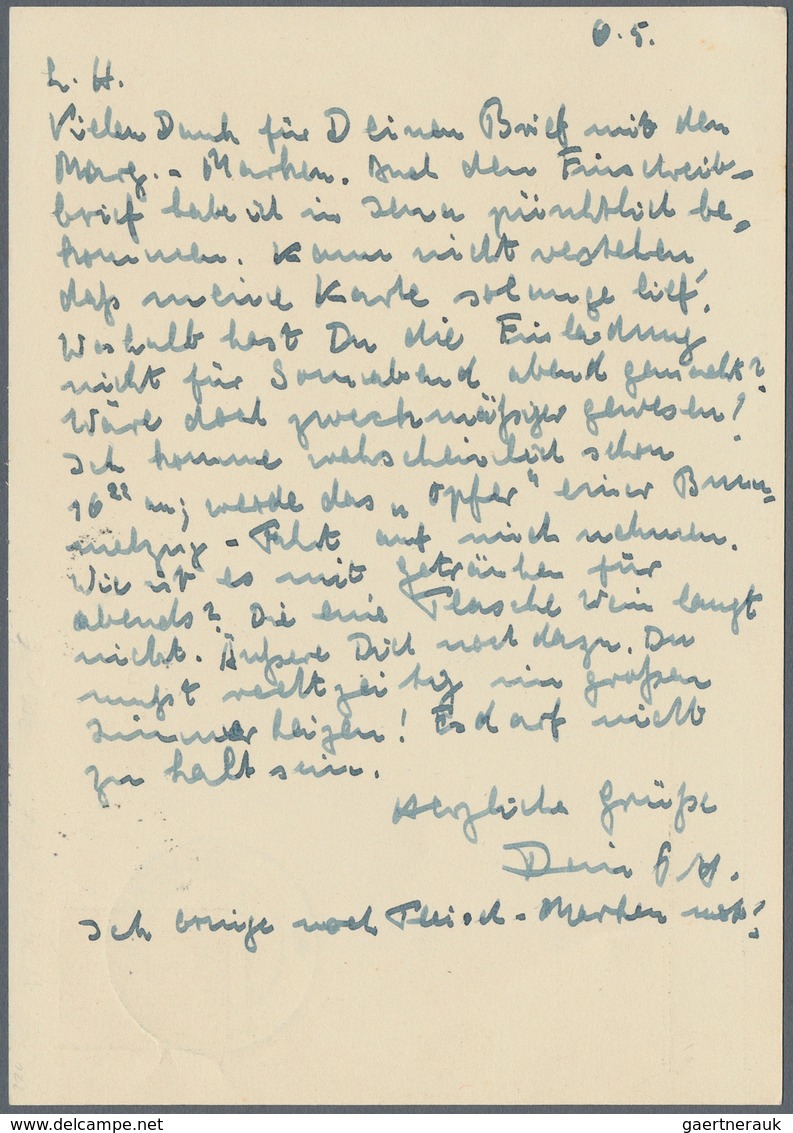 0.5.
L. H.
Vielen Dank für Deinen Brief mit den
Marg. - Marken. Auch den Einschreib-
brief habe ich in Jena pünktlich be-
kommen. Kann nicht verstehen,
daß meine Karte solange lief.
Weshalb hast Du die Einladung
nicht für Sonnabend abend gemacht?
Wäre doch zweckmäßiger gewesen!
Ich komme wahrscheinlich schon
16²² an; werde das „Opfer" einer Bum-
melzug - Fahrt auf mich nehmen.
Wie ist es mit Getränken für
abends? Die eine Flasche Wein langt
nicht. Äußere Dich noch dazu. Du
mußt rechtzeitig im großen
Zimmer heizen! Es darf nicht
zu kalt sein.
Herzliche Grüße
Dein
Ich bringe noch Fleisch - Marken mit!
gaertnerauk